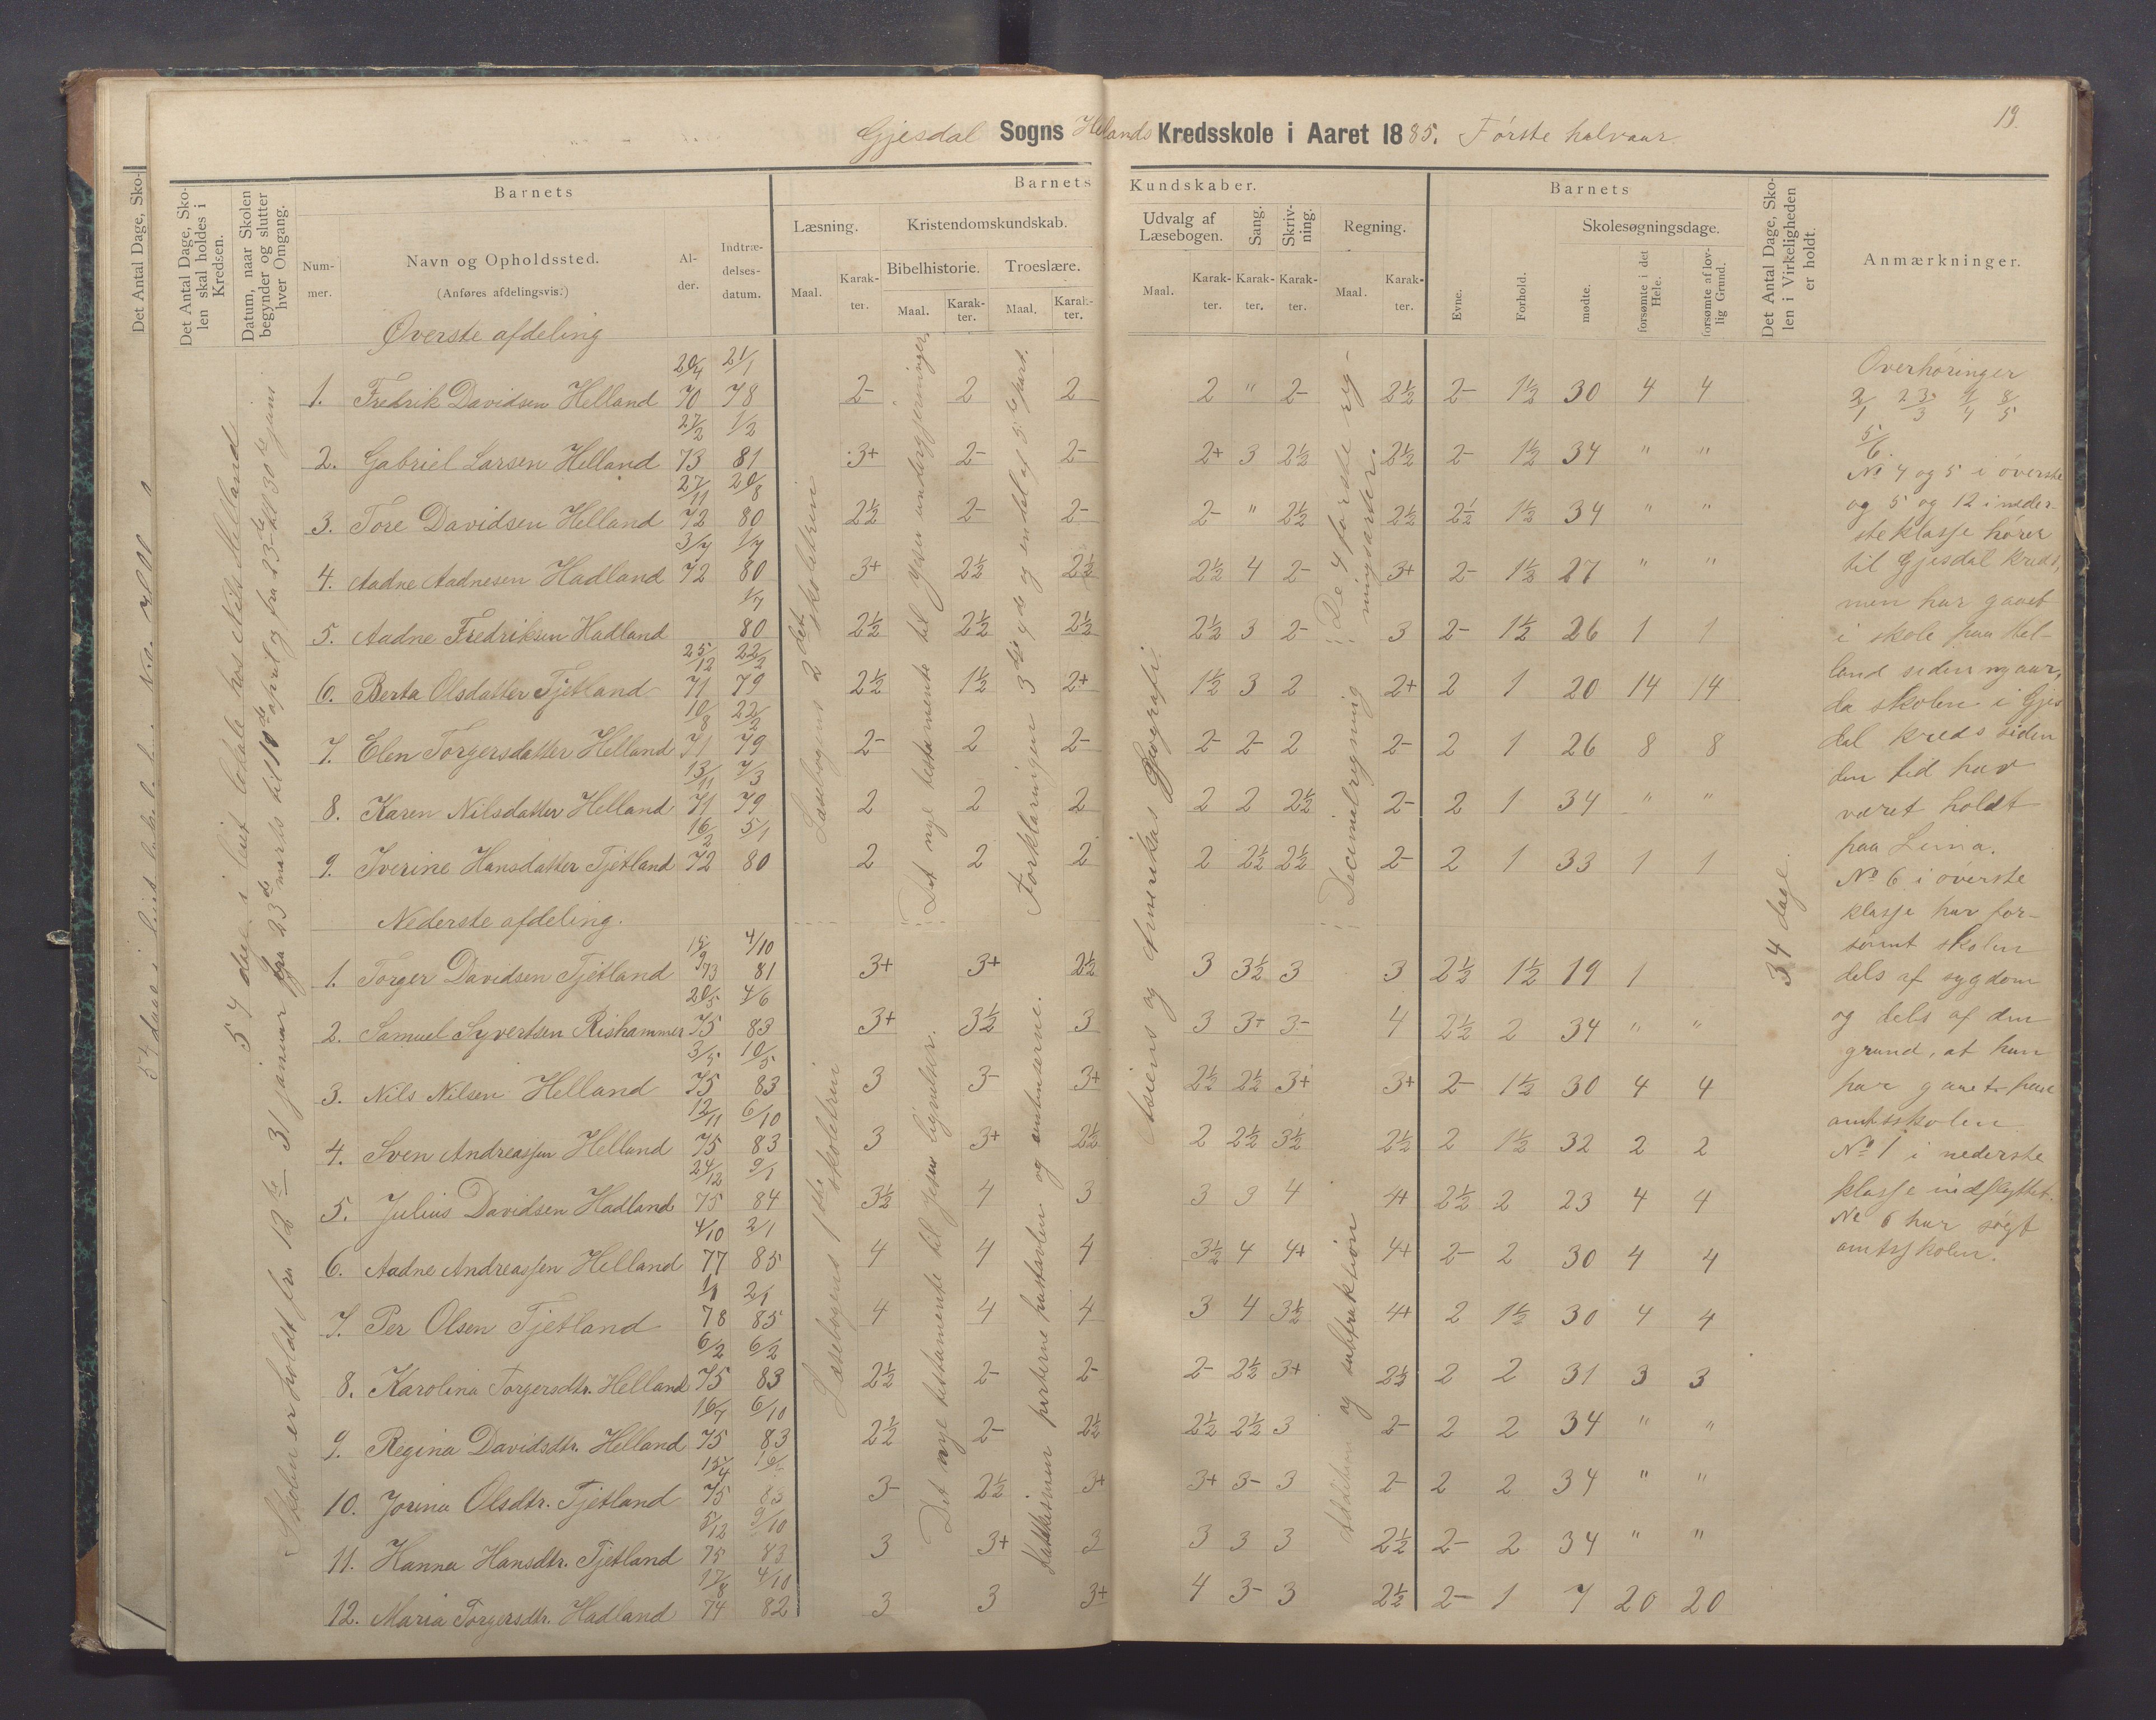 19.
Gjesdal Sogns Hellands Kredsskole i Aaret 1885. Første halvaar.
Det Antal Dage, Sko-
Det Antal Dage, Sko-
len skal holdes i
Kredsen.
Datum, naar Skolen
begynder og slutter
hver Omgang.
Barnets
Num-
mer.
Navn og Opholdssted.
(Anføres afdelingsvis.)
Al-
der.
Indtræ-
delses-
datum.
Barnets Kundskaber.
Læsning.
Maal.
Karak-
ter.
Kristendomskundskab.
Bibelhistorie.
Maal.
Karak-
ter.
Troeslære.
Maal.
Karak-
ter.
Udvalg af
Læsebogen.
Maal.
Karak-
ter.
Sang.
Karak-
ter.
Skriv-
ning.
Karak-
ter.
Regning.
Maal.
Karak-
ter.
Barnets
Evne.
Forhold.
Skolesøgningsdage.
mødte.
forsømte i det
Hele.
forsømte af lov-
lig Grund.
Det Antal Dage, Sko-
len i Virkeligheden
er holdt.
Anmærkninger.
Øverste afdeling
1. Fredrik Davidsen Helland 20/4 70 21/1 78 2- 2 2 2 " 2- 2½ 2- 1½ 30 4 4
2. Gabriel Larsen Helland 27/2 73 1/2 81 3+ 2- 2- 2+ 3 2½ 2½ 2- 1½ 34 " "
3. Tore Davidsen Helland 27/11 72 20/8 80 2½ 2- 2- 2- " 2½ 2½ 2½ 1½ 34 " "
4. Aadne Aadnesen Hadland 3/7 72 1/7 80 3+ 2½ 2½ 2½ 4 2- 3+ 2- 1½ 27 " "
5. Aadne Fredriksen Hadland 1/7 80 2½ 2½ 2½ 2½ 3 2- 3 2- 1½ 26 1 1
6. Berta Olsdatter Tjetland 25/12 71 22/2 79 2½ 1½ 2+ 1½ 3 2 2+ 2 1 20 14 14
7. Elen Torgersdatter Helland 10/8 71 22/2 79 2- 2 2- 2- 2- 2 2- 2 1 26 8 8
8. Karen Nilsdatter Helland 13/11 71 7/3 79 2 2 2 2 2 2½ 2- 2 1 34 " "
9. Iverine Hansdatter Tjetland 16/2 72 5/1 80 2 2 2 2 2½ 2½ 2- 2 1 33 1 1
Nederste afdeling.
1. Torger Davidsen Tjetland 15/9 73 4/10 81 3+ 3+ 2½ 3 3½ 3 3 2½ 1½ 19 1
2. Samuel Syvertsen Rishammer 20/5 75 4/6 83 3+ 3½ 3 3 3+ 3- 4 2½ 2 34 " "
3. Nils Nilsen Helland 3/5 75 10/5 83 3 3- 3+ 2½ 2½ 3+ 3+ 2- 1½ 30 4 4
4. Sven Andreassen Helland 12/11 75 6/10 83 3 3+ 2½ 2 2½ 3½ 2½ 2 1½ 32 2 2
5. Julius Davidsen Hadland 24/12 75 9/1 84 3½ 4 3 3 3 4 4+ 2½ 2 23 4 4
6. Aadne Andreassen Helland 4/10 77 2/1 85 4 4 4 3½ 4 4+ 4+ 2- 2 30 4 4
7. Per Olsen Tjetland 1/1 78 2/1 85 4 4 4 3 4 3½ 4+ 2 1½ 30 4 4
8. Karolina Torgersdtr. Helland 6/2 75 6/2 83 2½ 2- 2- 2- 2½ 3+ 2½ 2 2 31 3 3
9. Regina Davidsdtr. Helland 16/7 75 6/10 83 2½ 2- 2½ 2½ 2½ 3 2- 2 2 34 " "
10. Jorina Olsdtr. Tjetland 15/4 75 83 3- 2½ 3+ 3+ 3- 3 2- 2 2 34 " "
11. Hanna Hansdtr. Tjetland 5/12 75 9/10 83 3 3+ 3 3 3 3 2½ 2- 2 34 " "
12. Maria Torgersdtr. Hadland 17/8 74 4/10 82 3 3 3+ 4 3- 3 2½ 2- 1 7 20 20
54 dage i leiet lokale hos Nils Helland
Skolen er holdt fra 12te – 31 januar fra 23de marts til 10de april og fra 23de til 30te juni
Læsebogens 2det skoletrin
Det nye testamente til Jesu undergjerninger
Forklaringen 3die 4de og en del af 5te part.
Asiens og Amerikas Geografi.
De 4 første reg-
ningsarter.
Decimalregning
Læsebogens 1ste skoletrin
Det nye testamente til Jesu lignelser.
Katekismen parterne hustavlen og
Addition og subtraktion
34 dage.
Overhøringer
2/1 23/3 9/4 8/5
5/6.
No 4 og 5 i øverste
og 5 og 12 i neder-
ste klasse hører
til Gjesdal kreds,
men har gaaet
i skole paa Hel-
land siden nyaar,
da skolen i Gjes
dal kreds siden
den tid har
været holdt
paa Lima.
No 6 i øverste
klasse har for-
sømt skolen
dels af sygdom
og dels af den
grund, at hun
har gaaet paa
amtsskolen
No 1 i nederste
klasse indflyttet.
No 6 har søgt
amtsskolen.